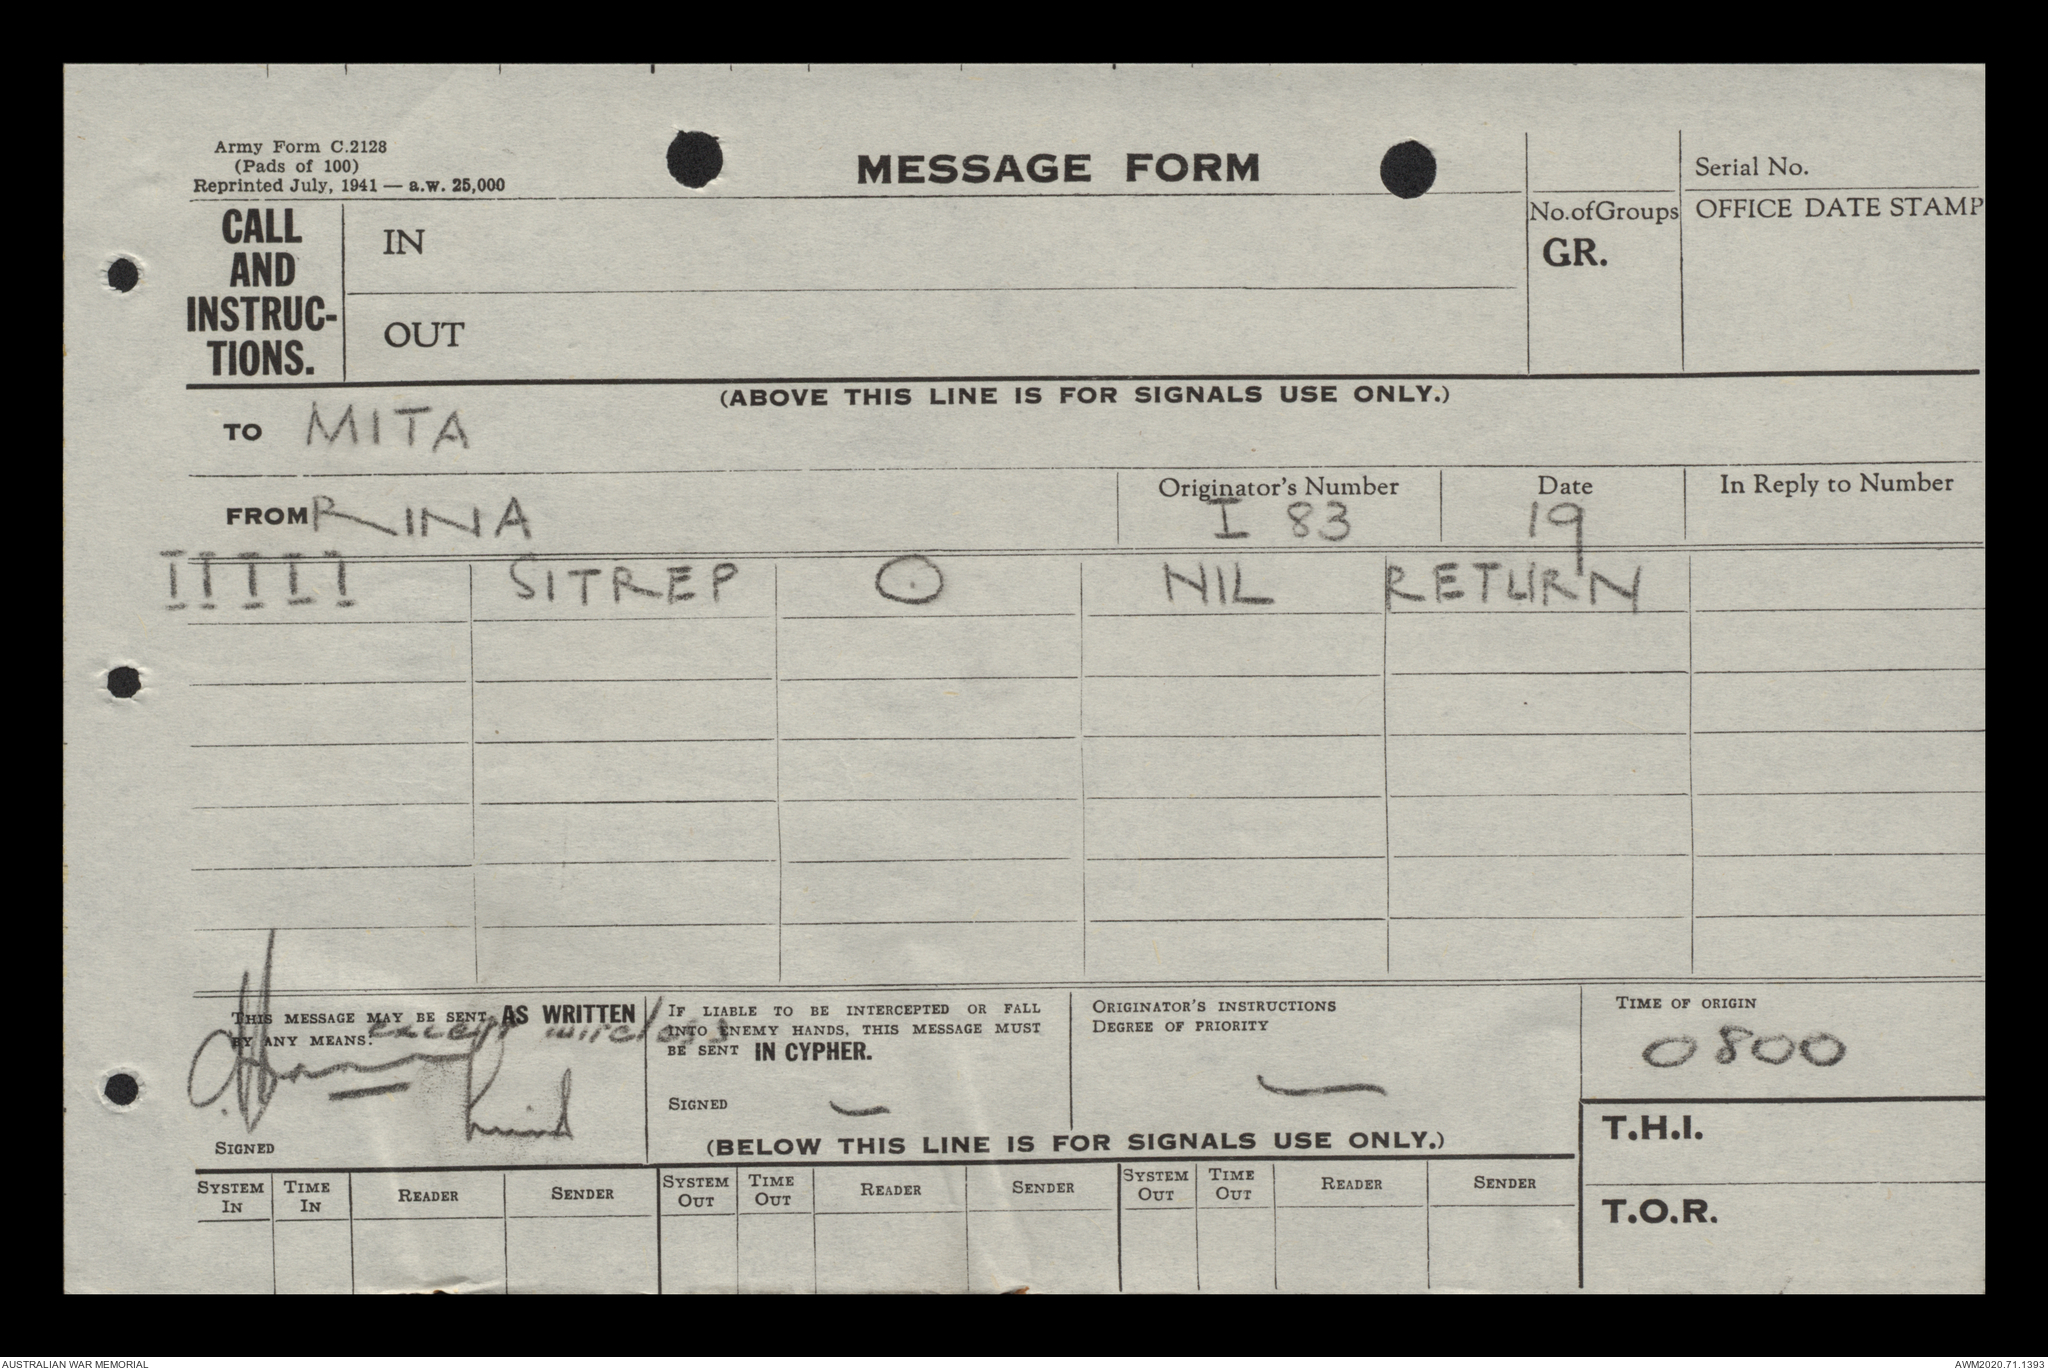 Army Form C.2128
(Pads of 100)
Reprinted July, 1941 — a.w. 25,000
MESSAGE FORM
Serial No.
CALL
AND
INSTRUC-
TIONS.
IN
OUT
No.ofGroups
GR.
OFFICE DATE STAMP
(ABOVE THIS LINE IS FOR SIGNALS USE ONLY.)
TO MITA
FROM RINA
Originator's Number
I 83
Date
19
In Reply to Number
IIIII SITREP O NIL RETURN
THIS MESSAGE MAY BE SENT AS WRITTEN
BY ANY MEANS. except wireless
SIGNED
IF LIABLE TO BE INTERCEPTED OR FALL
INTO ENEMY HANDS, THIS MESSAGE MUST
BE SENT IN CYPHER.
SIGNED —
ORIGINATOR'S INSTRUCTIONS
DEGREE OF PRIORITY
—
TIME OF ORIGIN
0800
T.H.I.
T.O.R.
(BELOW THIS LINE IS FOR SIGNALS USE ONLY.)
SYSTEM IN TIME IN READER SENDER SYSTEM OUT TIME OUT READER SENDER SYSTEM OUT TIME OUT READER SENDER
AUSTRALIAN WAR MEMORIAL
AWM2020.71.1393